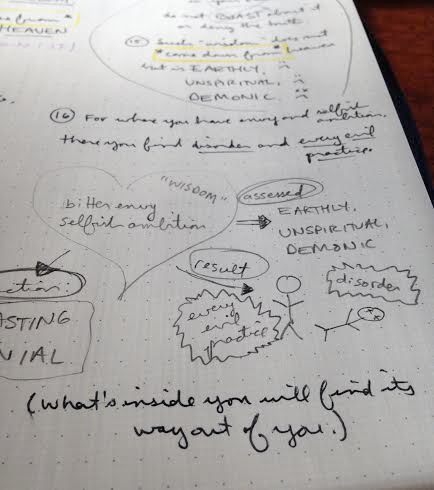 do not BOAST about it
or deny the truth
(15) Such "wisdom" does not
"come down from" heaven
but is EARTHLY,
UNSPIRITUAL,
DEMONIC
from"
HEAVEN
(16) For where you have envy and selfish ambition,
there you find disorder and every evil
practice.
"WISDOM"
bitter envy
selfish ambition
assessed
EARTHLY,
UNSPIRITUAL,
DEMONIC
result
every
evil
practice
disorder
ction:
ASTING
NIAL
(What's inside you will find its
way out of you.)